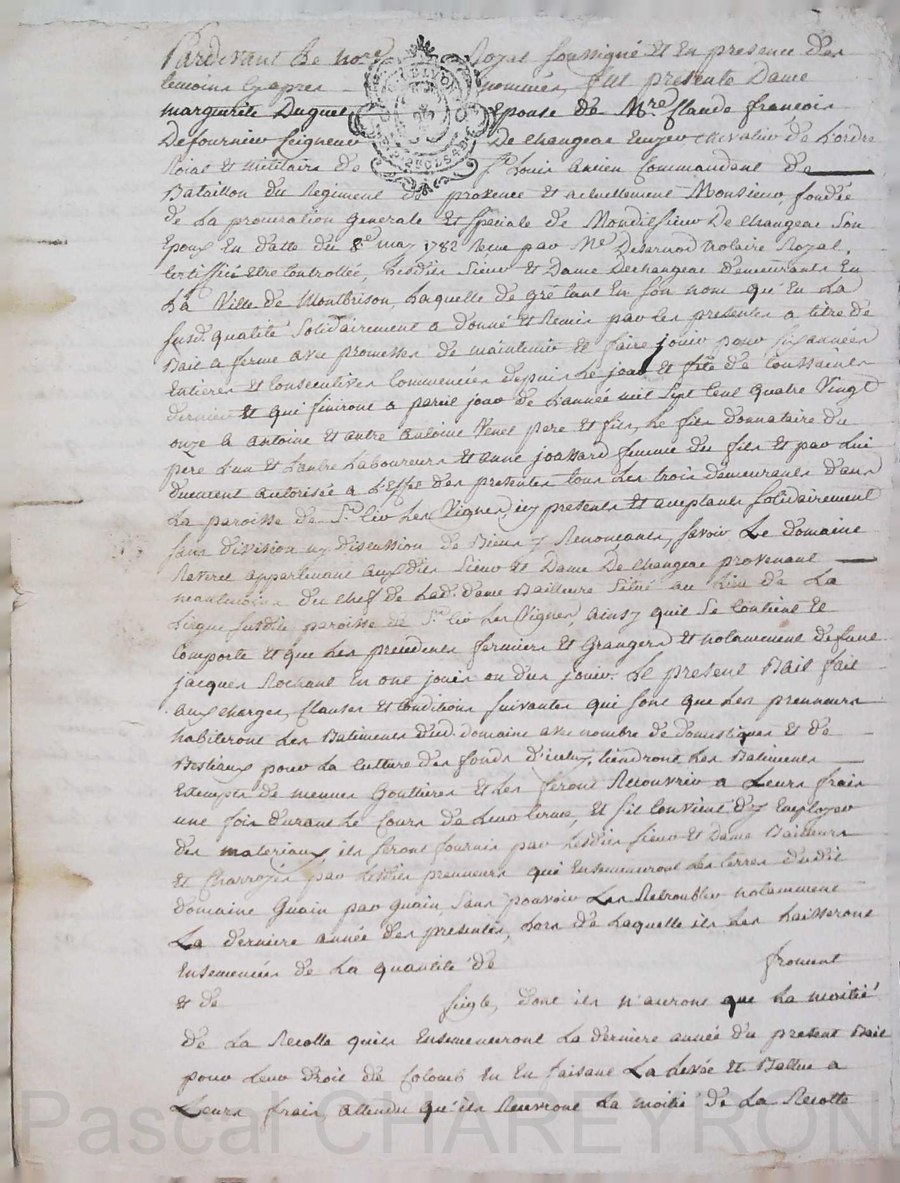 Pardevant Le nore Royal soussigné et En presence des
temoins Cyapres nommés, fut presente Dame
marguerite Duguet Epouse de Mre Claude françois
Defournier seigneur De Changeac Ecuyer Chevalier de Lordre
Roial et militaire de St Louis ancien Commandant de
Bataillon du Regiment de provence et actuellement Monsieur, fondée
de La procuration generale et speciale de Monditsieur De Changeac son
Epoux En datte du 8e may 1782 Reçue par Me Desarnod Notaire Royal,
Certiffiée etre Controllée, Lesdits sieur et Dame Dechangeac demeurants En
La Ville de Montbrison, Laquelle de gré tant En son nom qu'En La
susd. qualité solidairement a donné et Remis par les presentes a titre de
Bail a ferme avec promesses de maintenir et faire jouir pour six années
Entieres et Consecutives Commencées depuis Le jour et fête de toussaints
dernier et qui finiront a pareil jour de L'année mil sept Cent quatre Vingt
onze a antoine et autre antoine Venet pere et fils, Le fils donnataire du
pere L'un et L'autre Laboureurs et anne joassard femme du fils et par Lui
duement autorisée a L'Effet des presentes tous Les trois demeurants dans
La paroisse de St Cir Les Vignes, icy presents et acceptants solidairement
sans division ny discussion de Biens y Renonçants, savoir Le domaine
Raveret appartenant auxdits sieur et Dame De Changeac provenant
neantmoins du Chef de Lad. dame Bailleure situé au Lieu de La
Lirgue susdite paroisse de St Cir Les Vignes, ainsy quil se Contient et
Comporte et que Les precedents fermiers et Grangers et notamment defunt
jacques Rochand En ont joui ou dus jouir. Le present Bail fait
aux Charges, Clauses et Conditions suivantes qui sont que Les preneurs
habiteront Les Batiments dud. domaine avec nombre de domestiques et de
Bestiaux pour La Culture des fonds d'icelui, tiendront Les Batiments
Exempts de menues Gouttieres et Les feront Recouvrir a Leurs frais
une fois durant Le Cours de Leur ferme, et s'il Convient d'y Employer
des materiaux, ils seront fournis par Lesdits sieur et Dame Bailleurs
et Charroyés par Lesdits preneurs qui Ensemenceront Les terres dudit
domaine Guain par guain, sans pouvoir Les Retroubler notamment
La derniere année des presentes, Lors de Laquelle ils Les Laisseront
Ensemencées de La quantité de froment
et de seigle, dont ils n'auront que La moitié
de La Recolte quils Ensemenceront La derniere année du present Bail
pour Leur droit de Colomb En En faisant La Levée et Battue a
Leurs frais, attendu qu'ils Recevront La moitié de La Recolte
Pascal CHAREYRON